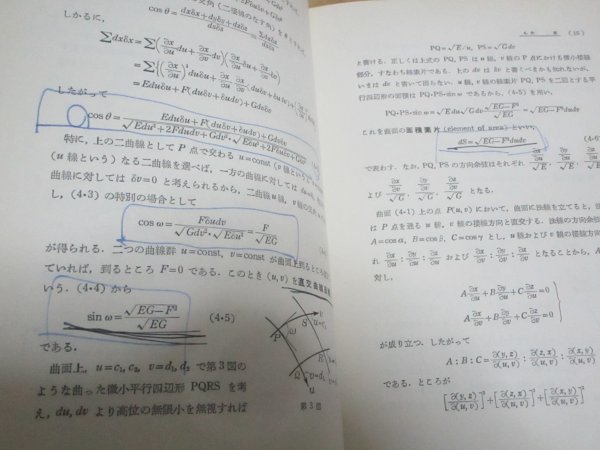 cosθ = (dxδx+dyδy+dzδz) Σdxδx
しかるに，
Σdxδx = Σ(∂x/∂u du + ∂x/∂v dv)(∂x/∂u δu + ∂x/∂v δv)
= Σ{(∂x/∂u)² duδu +
= Eduδu + F(duδv + dvδu) + Gdvδv
したがって
cosθ = (Eduδu + F(duδv + dvδu) + Gdvδv) / (√Edu²+2Fdudv+Gdv² · √Eδu²+2Fδuδv+Gδv²)
特に，上の二曲線として P 点で交わる u=const (v 線という)
(u 線という) なる二曲線を選べば，一方の曲線に対しては du=0,
曲線に対しては δv=0 と考えられるから，二曲線 u 線，v 線の
し，(4·3) の特別の場合として
cos ω = Fδudv / (√Gdv² · √Eδu²) = F/√EG
が得られる．二つの曲線群 u=const, v=const が曲面上到るところ
ていれば，到るところ F=0 である．このとき (u, v) を直交曲線座
いう．(4·4) から
sin ω = √EG−F² / √EG (4·5)
である．
曲面上，u=c₁, c₂, v=d₁, d₂ で第3図の
ような曲った微小平行四辺形 PQRS を考
え，du, dv より高位の無限小を無視すれば
P
ω
S
Q
R
v=d₁
u
第 3 図
(15)
PQ=√E du, PS=√G dv
と書ける．正しくは上式の PQ, PS は u 線，v 線の P 点における微小接線
部分，すなわち線素片である．上の dv は δv と書くべきかも知れないが，
いまは dv と書いて困らない．u 線，v 線の線素片 PQ, PS を二辺とする平
行四辺形の面積は PQ·PS·sin ω であるから，(4·5) を用い，
PQ·PS·sin ω = √E du √G dv √EG−F²/√EG = √EG−F² dudv
これを曲面の面積素片 (element of area) といい，
dS = √EG−F² dudv (4·6)
で表わす．なお，PQ, PS の方向余弦はそれぞれ ∂x/∂u/√E, ∂y/∂u/√E, ∂z/∂u/√E
および ∂x/∂v/√G, ∂y/∂v/√G, ∂z/∂v/√G となる．
曲面 (4·1) 上の点 P(u, v) において，曲面に法線を立てると，法
は P 点を通る u 線，v 線の接線方向と直交する．法線の方向余弦
A=cos α, B=cos β, C=cos γ とし，u 線および v 線の接線方向
れぞれ ∂x/∂u : ∂y/∂u : ∂z/∂u および ∂x/∂v : ∂y/∂v : ∂z/∂v となることから，
対し，
A ∂x/∂u + B ∂y/∂u + C ∂z/∂u = 0
A ∂x/∂v + B ∂y/∂v + C ∂z/∂v = 0
が成り立つ．したがって
A : B : C = ∂(y, z)/∂(u, v) : ∂(z, x)/∂(u, v) : ∂(x, y)/∂(u, v)
である．ところが
[∂(y, z)/∂(u, v)]² + [∂(z, x)/∂(u, v)]² + [∂(x, y)/∂(u, v)]²